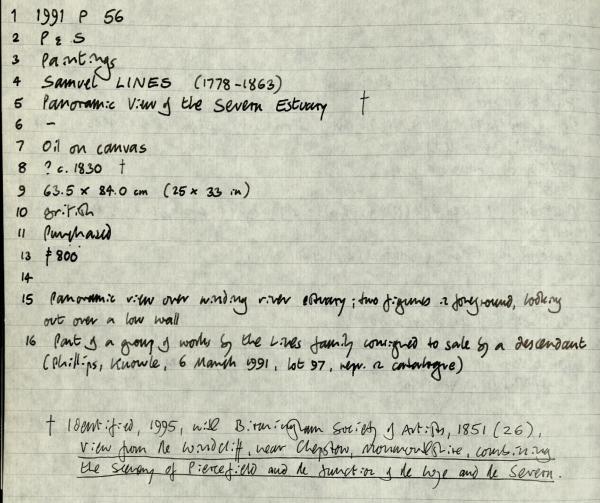 1 1991 P 56
2 P & S
3 Paintings
4 Samuel LINES (1778-1863)
5 Panoramic View of the Severn Estuary †
6 -
7 Oil on canvas
8 ? c. 1830 †
9 63.5 x 84.0 cm (25 x 33 in)
10 British
11 Purchased
13 £800
14
15 Panoramic view over winding river estuary; two figures in foreground, looking
out over a low wall
16 Part of a group of works by the Lines family consigned to sale by a descendant
(Phillips, Knowle, 6 March 1991, lot 97, repr. in catalogue)
† Identified, 1995, with Birmingham Society of Artists, 1851 (26),
View from the Windcliff, near Chepstow, Monmouthshire, combining
the scenery of Piercefield and the junction of the Wye and the Severn.